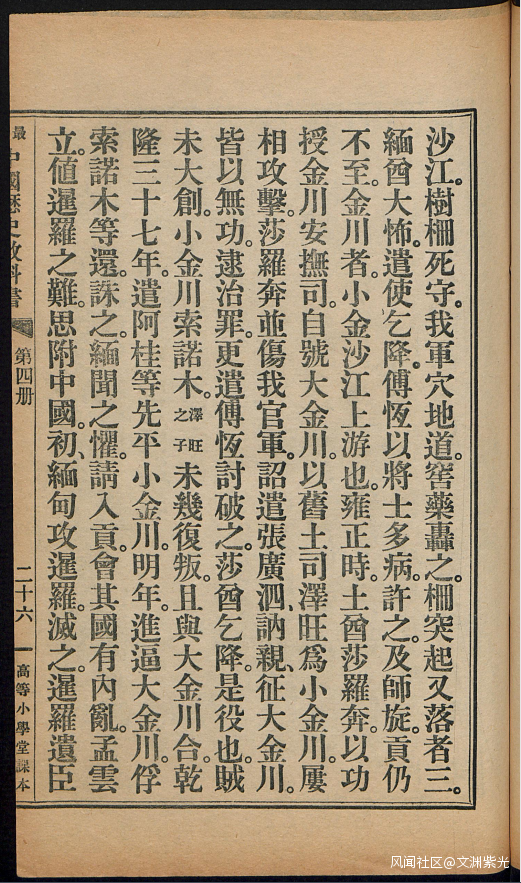 沙江。樹柵死守。我軍穴地道。窖藥轟之。柵突起又落者三。
緬酋大怖。遣使乞降。傅恆以將士多病。許之。及師旋。貢仍
不至。金川者。小金沙江上游也。雍正時。土酋莎羅奔。以功
授金川安撫司。自號大金川。以舊土司澤旺爲小金川。屢
相攻擊。莎羅奔並傷我官軍。詔遣張廣泗、訥親、征大金川。
皆以無功。逮治罪。更遣傅恆討破之。莎酋乞降。是役也。賊
未大創。小金川索諾木。澤旺之子未幾復叛。且與大金川合。乾
隆三十七年。遣阿桂等先平小金川。明年。進逼大金川。俘
索諾木等還。誅之。緬聞之懼。請入貢。會其國有內亂。孟雲
立。値暹羅之難。思附中國。初、緬甸攻暹羅。滅之。暹羅遺臣
最 中國歷史教科書 第四册 二十六 高等小學堂課本
风闻社区@文洲紫光